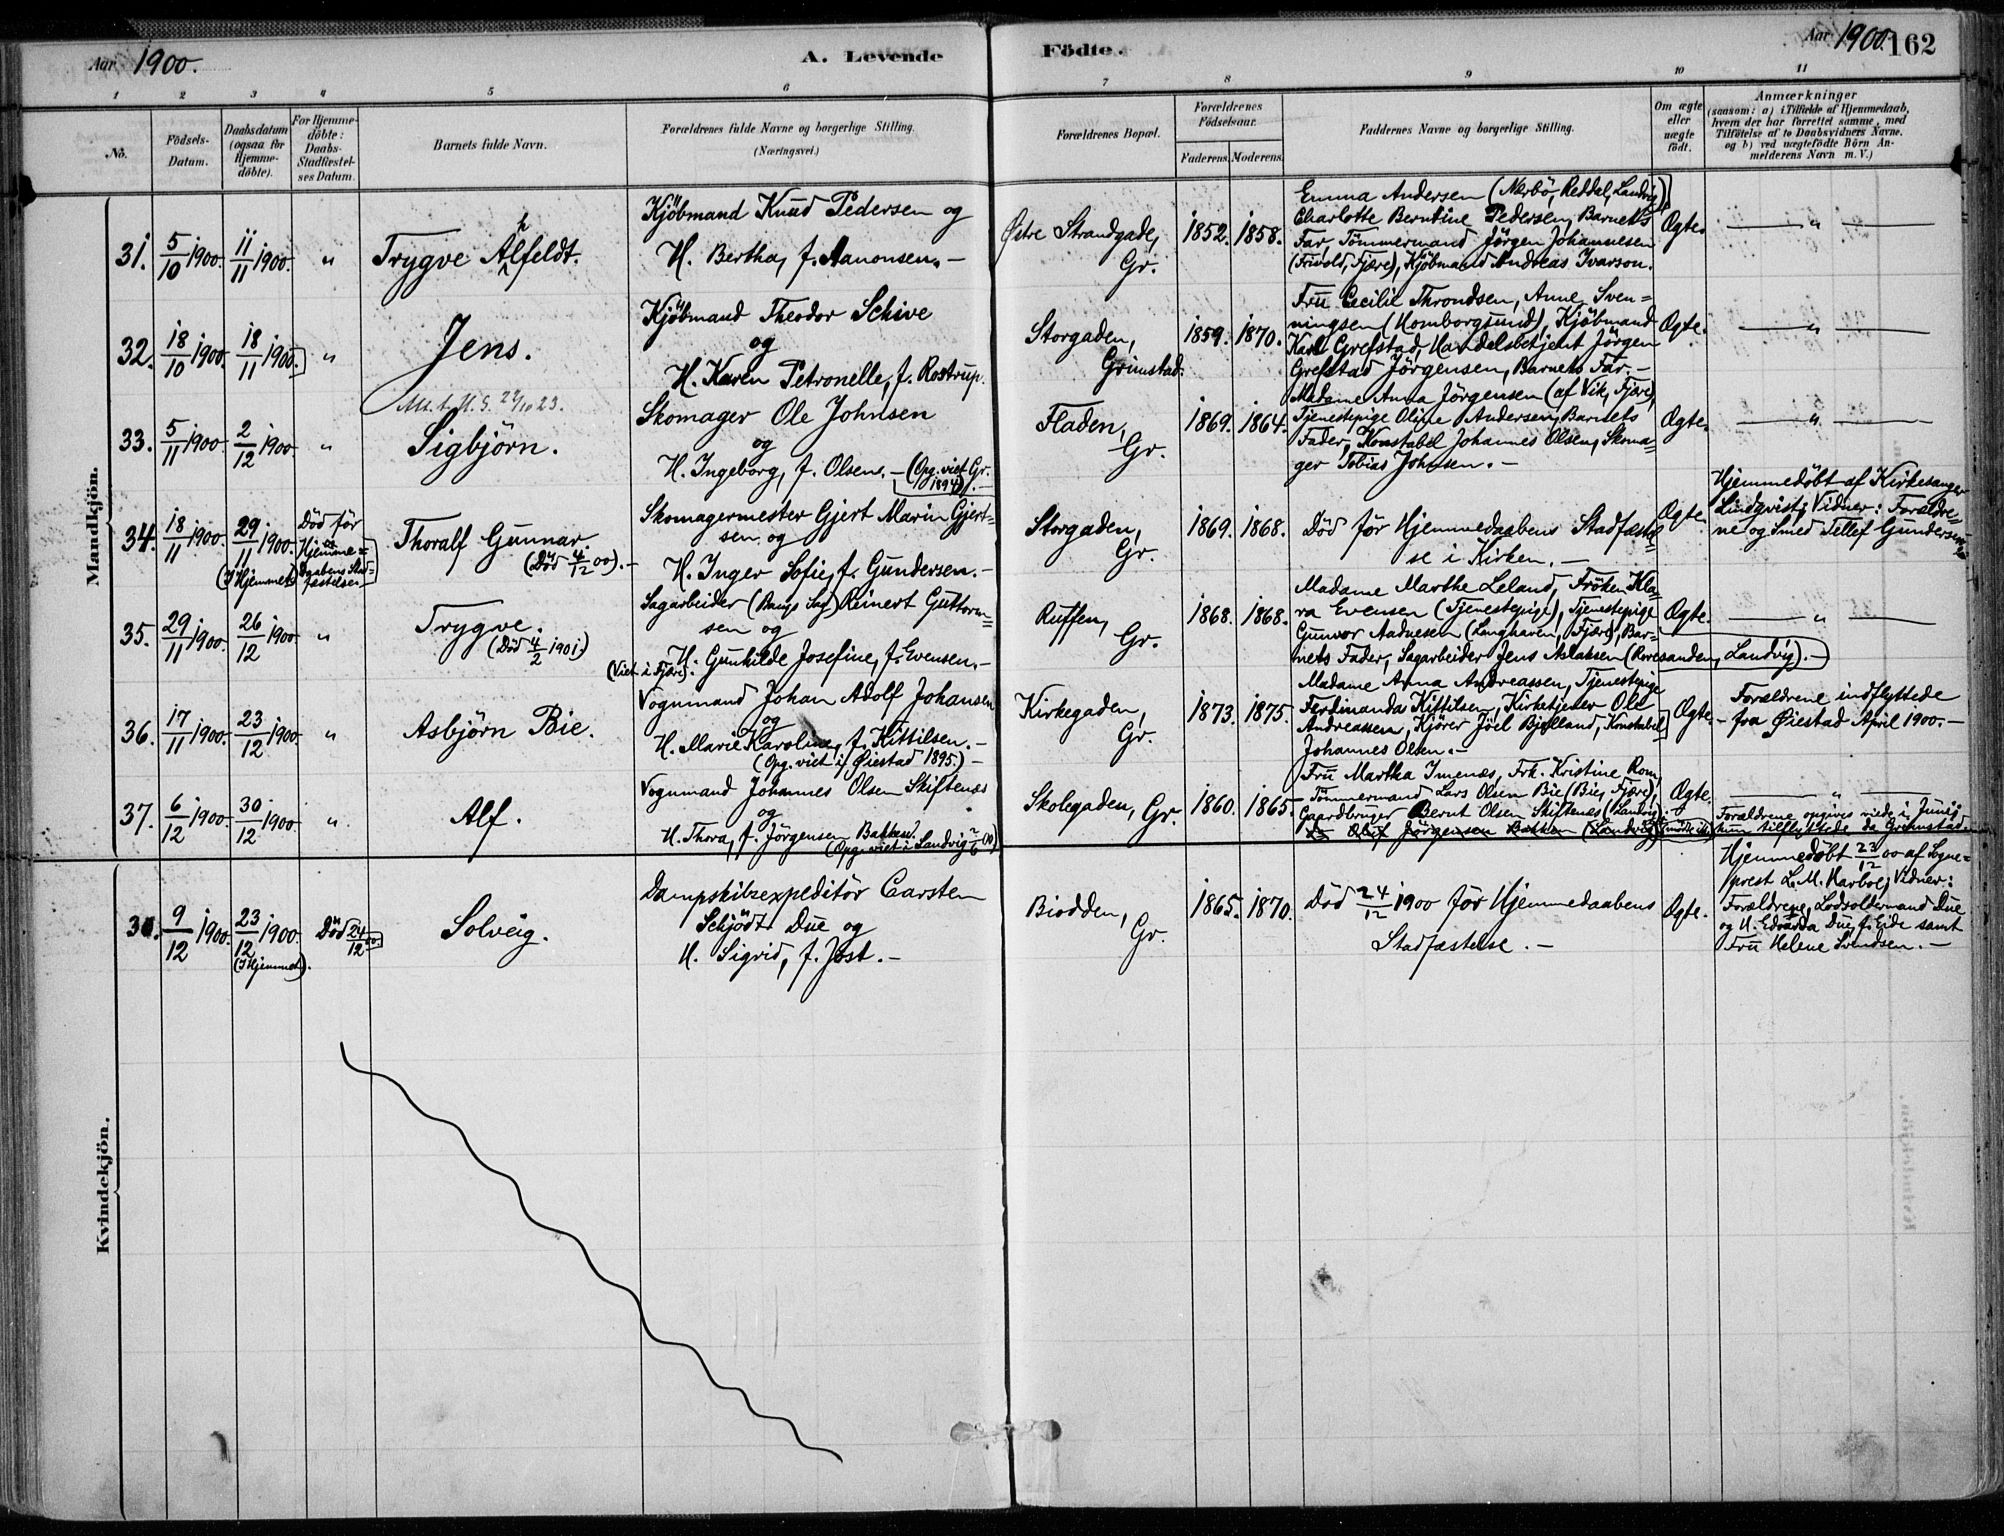 Aar 1900.
A. Levende Födte.
Aar 1900. 162
1 2 3 4 5 6 7 8 9 10 11
No.
Födsels-
Datum.
Daabsdatum
(ogsaa för
Hjemme-
döbte).
For Hjemme-
döbte:
Daabs-
Stadfæstel-
ses Datum.
Barnets fulde Navn.
Forældrenes fulde Navne og borgerlige Stilling.
(Næringsvei.)
Forældrenes Bopæl.
Forældrenes
Födselsaar.
Faderens. Moderens.
Faddernes Navne og borgerlige Stilling.
Om ægte
eller
uægte
født.
Anmærkninger
(saasom: a) i Tilfælde af Hjemmedaab,
hvem der har forrettet samme, med
Tilføielse af to Daabsvidners Navne.
og b) ved uægtefödte Börn An-
melderens Navn m. V.)
Mandkjön.
31. 5/10 1900. 11/11 1900. "
Trygve Alhfeldt.
Kjöbmand Knud Pedersen og
H. Bertha, f. Aanonsen. —
Østre Strandgade,
Gr.
1852. 1858.
Emma Andersen (Nærbö, Reddal, Landvig),
Charlotte Berntine Pedersen, Barnets
Far, Tömmermand Jörgen Johannesen
(Frivold, Fjære), Kjöbmand Andreas Ivarson.
Ægte.
— " —
32. 18/10 1900. 18/11 1900. "
Jens.
Kjöbmand Theodor Schive
og
H. Karen Petronelle, f. Rostrup.
Storgaden,
Grimstad.
1859. 1870.
Fru Cecilie Throndsen, Anne Sven=
ningsen (Homborgsund), Kjöbmand
Karl Grefstad, Handelsbetjent Jörgen
Grefstad Jörgensen, Barnets Far. —
Ægte.
— " —
33. 5/11 1900. 2/12 1900. "
23.
Sigbjörn.
Skomager Ole Johnsen
og
H. Ingeborg, f. Olsen. — (Opg. viet Gr.
1894). —
Fladen,
Gr.
1869. 1864.
Madame Anna Jörgensen (af Vik, Fjære),
Tjenestepige Oline Andersen, Barnets
Fader, Konstabel Johannes Olsen, Skoma=
ger Tobias Johnsen. —
Ægte.
— " —
34. 18/11 1900. 29/11 1900.
(I Hjemmet)
Död för
Hjemme=
daabens Stad=
fæstelse.
Thoralf Gunnar
(Död 4/12 00). —
Skomagermester Gjert Marin Gjert=
sen og
H. Inger Sofie, f. Gundersen. —
Storgaden,
Gr.
1869. 1868.
Död för Hjemmedaabens Stadfæstel=
se i Kirken. —
Ægte.
Hjemmedöbt af Kirkesanger
Lindqvist; Vidner: Forældre=
ne og Smed Tellef Gundersen.
35. 29/11 1900. 26/12 1900. "
Trygve.
(Död 4/2 1901.)
Sagarbeider (Bangs Sag) Reinert Guttorm=
sen og
(Viet i Fjære): H. Gunhilde Josefine, f. Evensen. —
Ruffen,
Gr.
1868. 1868.
Madame Marthe Leland, Fröken Kla=
ra Evensen (Tjenestepige), Tjenestepige
Gunvor Aadnesen (Langhaven, Fjære), Bar=
nets Fader, Sagarbeider Jens Aslaksen (Roresanden, Landvig). —
Ægte.
— " —
36. 17/11 1900. 23/12 1900. "
Asbjörn Bie.
Vognmand Johan Adolf Johansen
og
H. Marie Karoline, f. Kittilsen. —
(Opg. viet i Øiestad 1895.) —
Kirkegaden,
Gr.
1873. 1875.
Madame Anna Andreassen, Tjenestepige
Ferdinanda Kittilsen, Kirketjener Ole
Andreassen, Kjörer Joel Bjelland, Konstabel
Johannes Olsen. —
Ægte.
Forældrene indflyttede
fra Øiestad April 1900. —
37. 6/12 1900. 30/12 1900. "
Alf.
Vognmand Johannes Olsen Skiftenæs
og
H. Thora, f. Jörgensen Bakken.
(Opg. viet i Landvig 2/6 00)
Skolegaden, Gr.
1860. 1865.
Fru Martha Imenæs, Frk. Kristine Rom,
Tömmermand Lars Olsen Bie (Bie, Fjære),
Gaardbruger Bernt Olsen Skiftenes (Landvig),
Olaf Jörgensen Bakken (Landvig)
Ægte.
— " —
Forældrene opgives viede i Juni;
hun tilflyttede da Grimstad.
Kvindekjön.
9/12 1900. 23/12 1900.
(I Hjemmet).
Död 24/12 00.
Solveig.
Dampskibsexpeditör Carsten
Schjödt Due og
H. Sigrid, f. Jost. —
Biodden,
Gr.
1865. 1870.
Död 24/12 1900 för Hjemmedaabens
Stadfæstelse. —
Ægte.
Hjemmedöbt 23/12 00 af Sogne=
prest L. M. Harboe; Vidner:
Forældrene, Lodsoldermand Due
og H. Edvarda Due, f. Eide samt
Fru Helene Svendsen. —